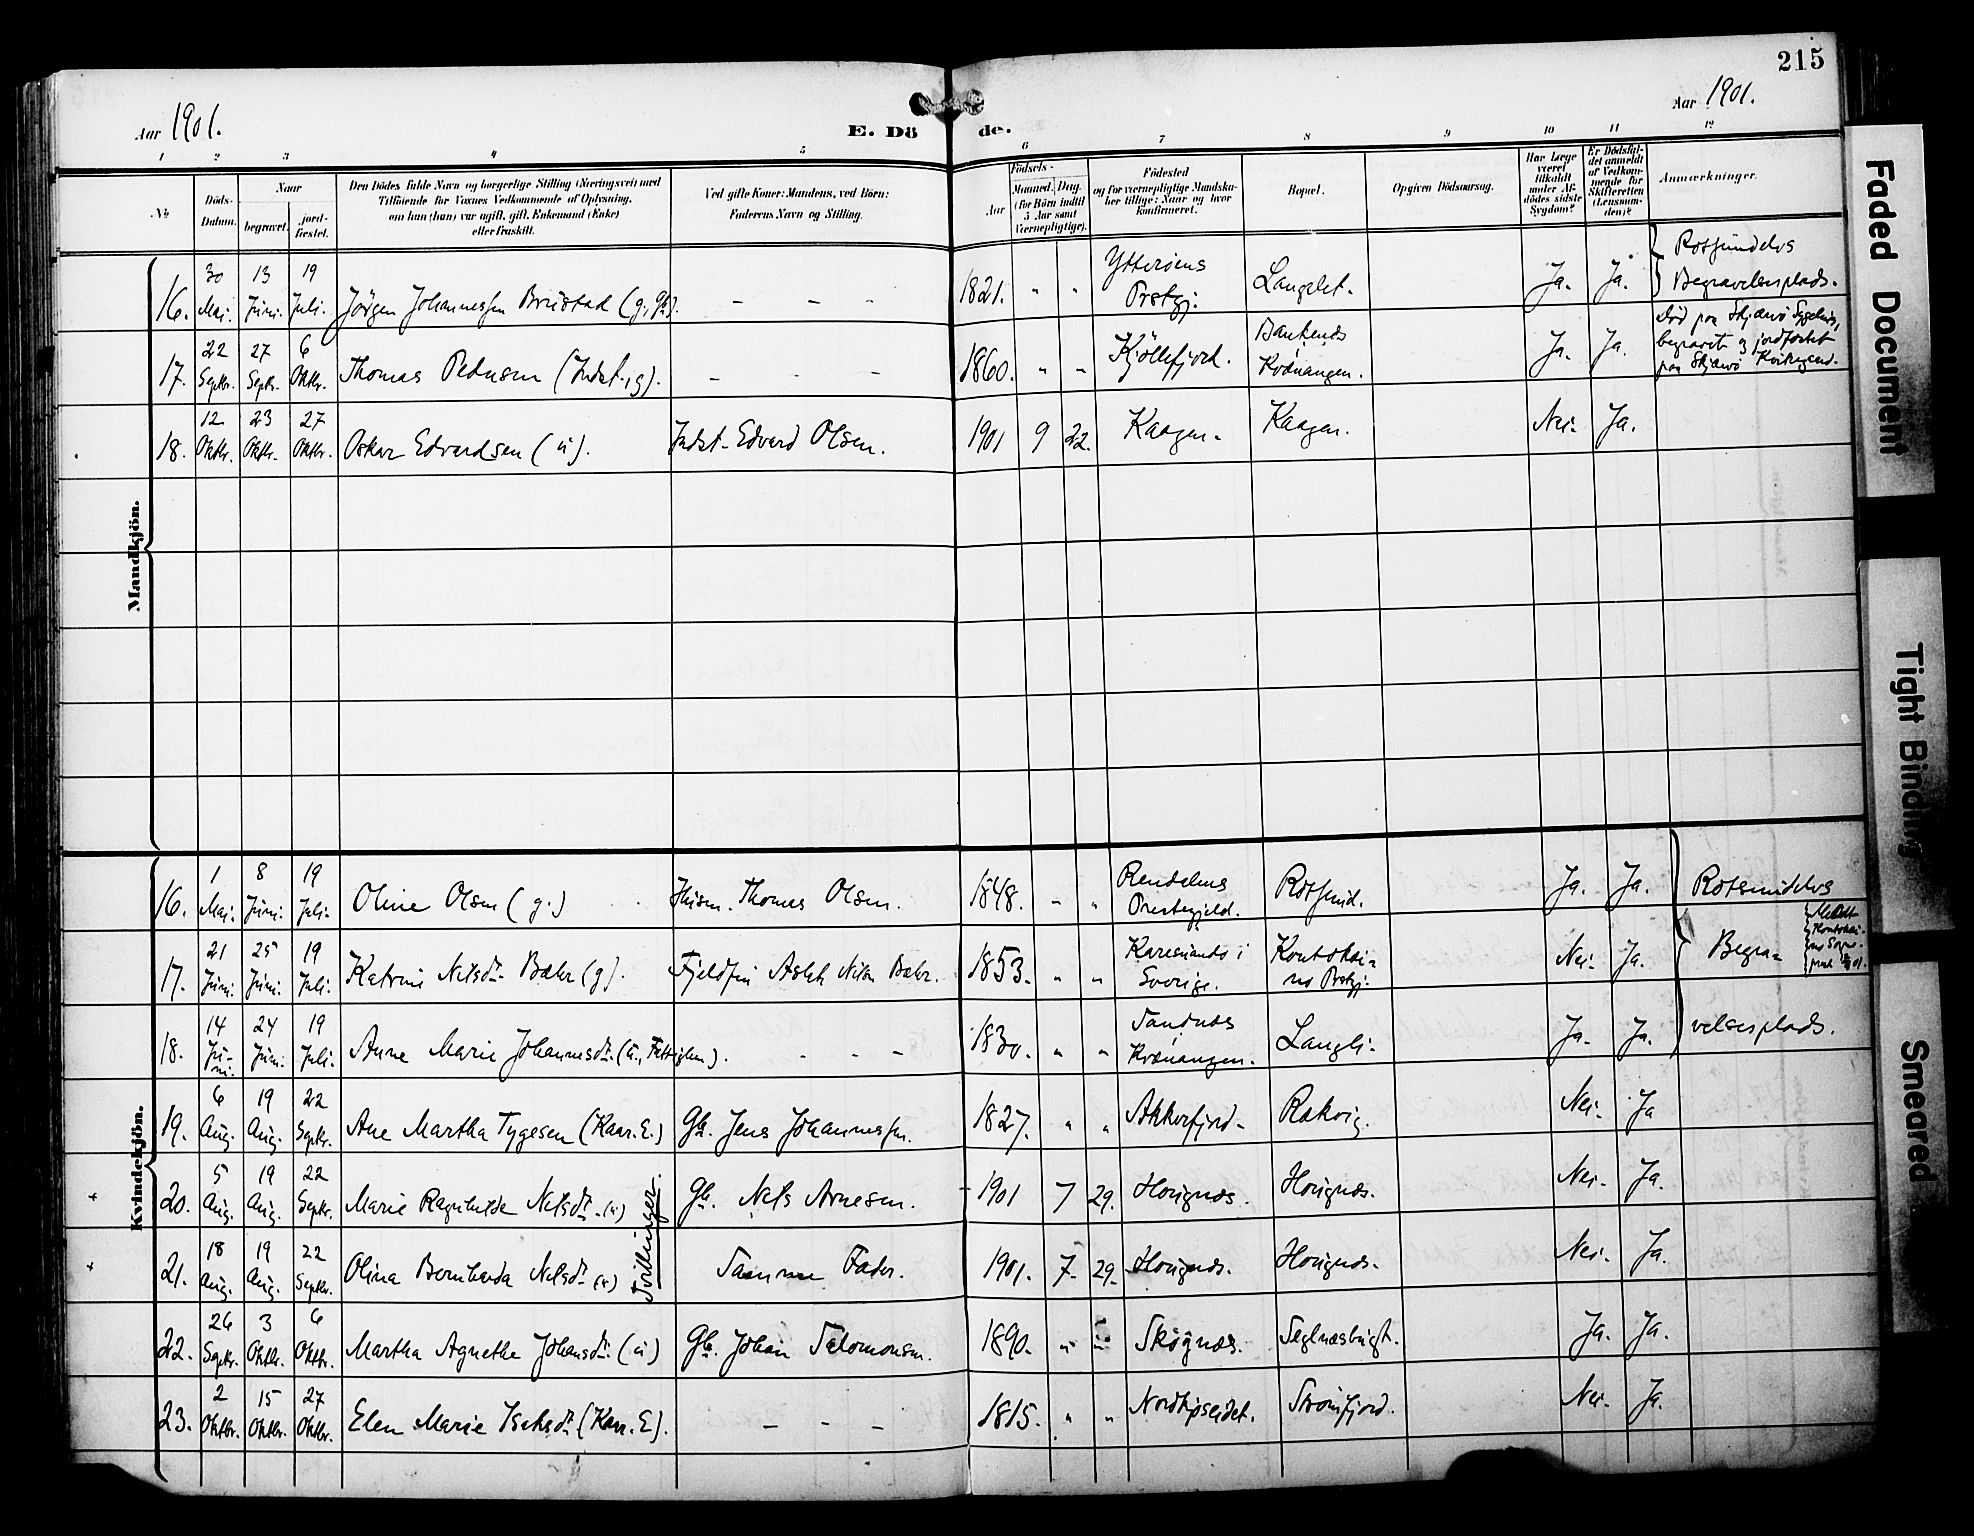 215
Aar 1901.
E. Dö
de.
Aar 1901.
1 2 3 4 5 6 7 8 9 10 11 12
№
Döds-
Datum.
Naar
begravet.
jord-
fæstet.
Den Dödes fulde Navn og borgerlige Stilling (Næringsvei) med
Tilföiende for Voxnes Vedkommende af Oplysning,
om han (hun) var ugift, gift, Enkemand (Enke)
eller fraskilt.
Ved gifte Koner: Mandens, ved Börn:
Faderens Navn og Stilling.
Födsels-
Aar
Maaned. Dag.
(for Börn indtil
5 Aar samt
Værnepligtige).
Födested
og for værnepligtige Mandska-
ber tillige: Naar og hvor
konfirmeret.
Bopæl.
Opgiven Dödsaarsag.
Har Læge
været
tilkaldt
under Af-
dödes sidste
Sygdom?
Er Dödsfal-
det anmeldt
af Vedkom-
mende for
Skifteretten
(Lensman-
den)?
Anmærkninger.
Mandkjön.
16. 30 Mai. 13 Juni. 19 Juli. Jörgen Johannessen Brustad (g, Gb.) – – – 1821. " " Ytteröens Prstgj: Langslet. Ja. Ja. Rotsundelvs Begravelsesplads.
17. 22 Septbr. 27 Septbr. 6 Oktbr. Thomas Pedersen (Indst., g). – – – 1860. " " Kjöllefjord. Bankenes Kvænangen. Ja. Ja. Död paa Skjærvö Sygehus, begravet og jordfæstet paa Skjærvö Kirkegaard.
18. 12 Oktbr. 23 Oktbr. 27 Oktbr. Oskar Edvardsen (u). Indst. Edvard Olsen. 1901 9 22. Kaagen. Kaagen. Nei. Ja.
Kvindekjön.
16. 1 Mai. 8 Juni. 19 Juli. Oline Olsen (g.) Husm. Thomas Olsen. 1848. " " Rendalens Prestegjeld. Rotsund. Ja. Ja. Rotsundelvs
17. 21 Juni. 25 Juni. 19 Juli. Katrine Nilsdr. Bæhr (g). Fjeldfin Aslak Nilsen Bæhr. 1853. " " Karesuando i Sverige. Koutokei- no Prstgj: Nei. Ja. Begra-
18. 14 Ju- ni. 24 Juni. 19 Juli. Anne Marie Johannesdr. (u., Fattiglem). – – – 1830. " " Sandnes Kvænangen. Langli. Ja. Ja. velsesplads.
19. 6 Aug. 19 Aug. 22 Septbr. Ane Martha Tygesen (Kaar. E.) Gb. Jens Johannessen. 1827. " " Akkarfjord. Rakvig. Nei. Ja
20. 5 Aug. 19 Aug. 22 Septbr. Marie Ragnhilda Nilsdr. (u) Gb. Nils Arnesen. 1901 7 29. Hougnæs. Hougnæs. Nei. Ja.
Tvillinger.
21. 18 Aug. 19 Aug. 22 Septbr. Olina Bernharda Nilsdr. (u) Samme Fader. 1901. 7. 29. Hougnæs. Hougnæs. Nei. Ja.
22. 26 Septbr. 3 Oktbr. 6 Oktbr. Martha Agnethe Johansdr. (u) Gb. Johan Salomonsen. 1890. " " Skognæs. Seglnæsbugt. Ja. Ja.
23. 2 Oktbr. 15 Oktbr. 27 Oktbr. Elen Marie Isaksdr. (Kaar. E). – – – 1815. " " Nordkjoseidet. Straumfjord. Nei. Ja.
Faded Document
Tight Binding
Smeared